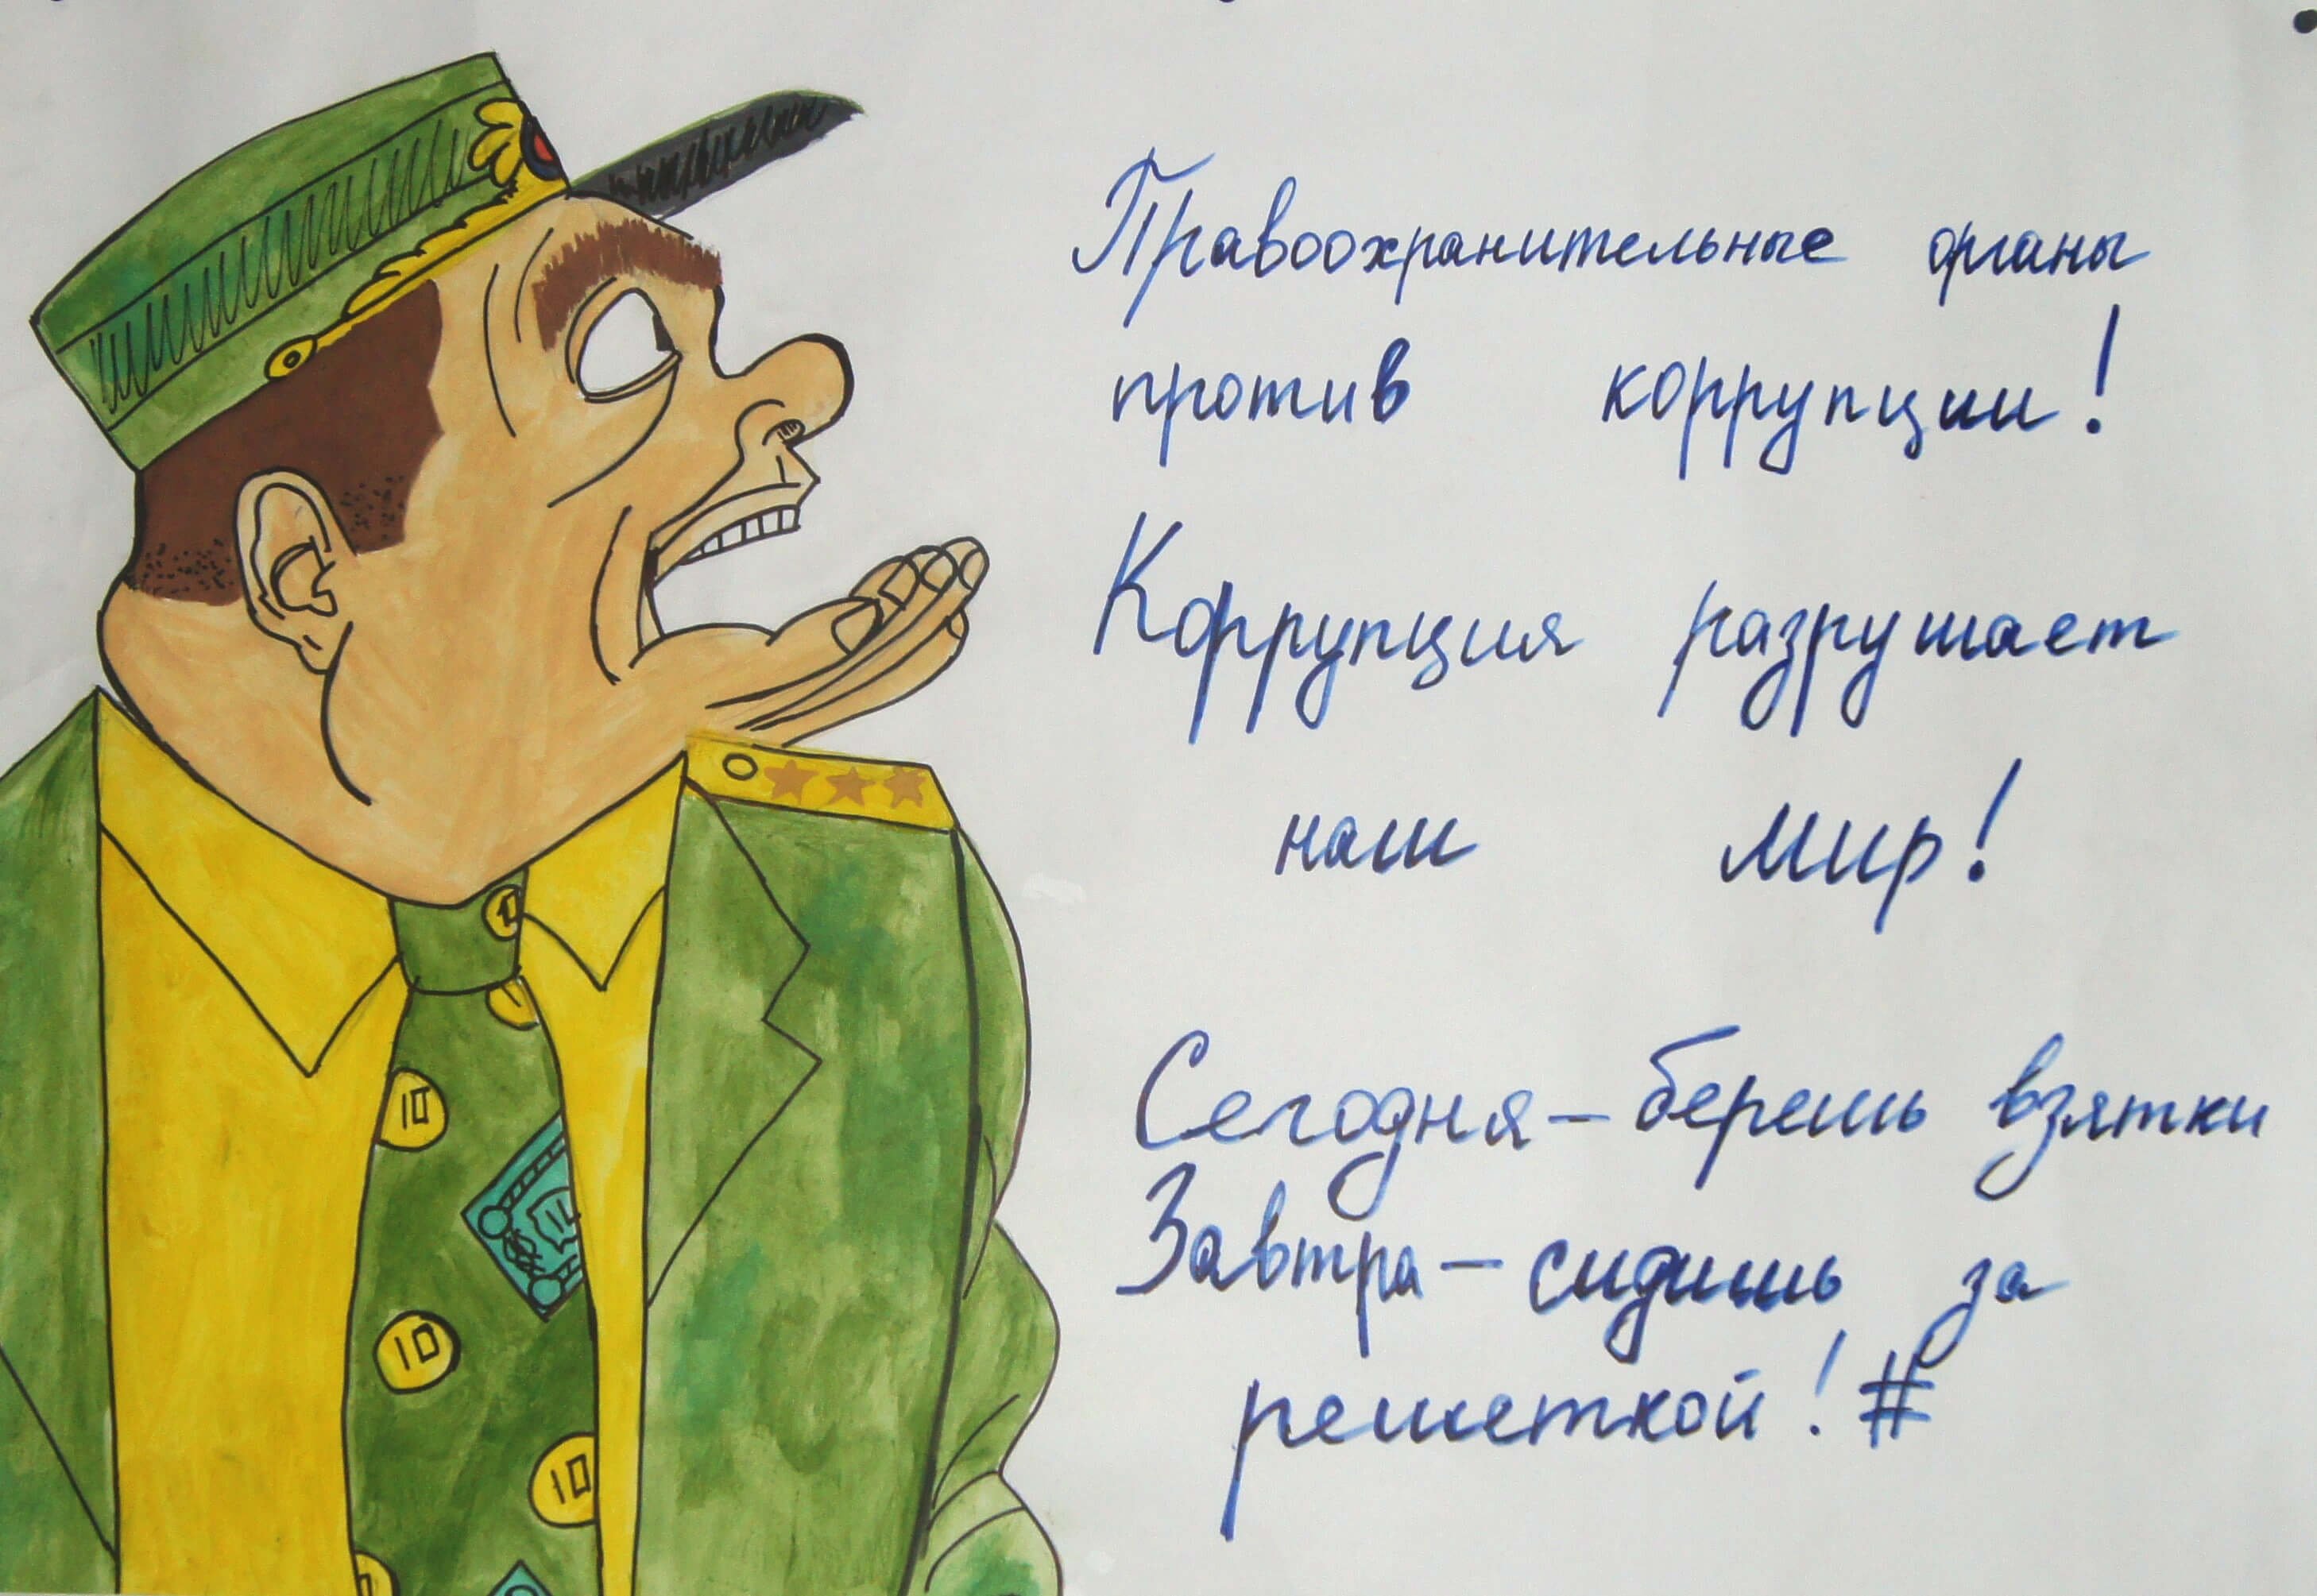 Правоохранительные органы
против коррупции!
Коррупция разрушает
наш мир!
Сегодня – берешь взятки
Завтра – сидишь за
решеткой! #
10
10
10